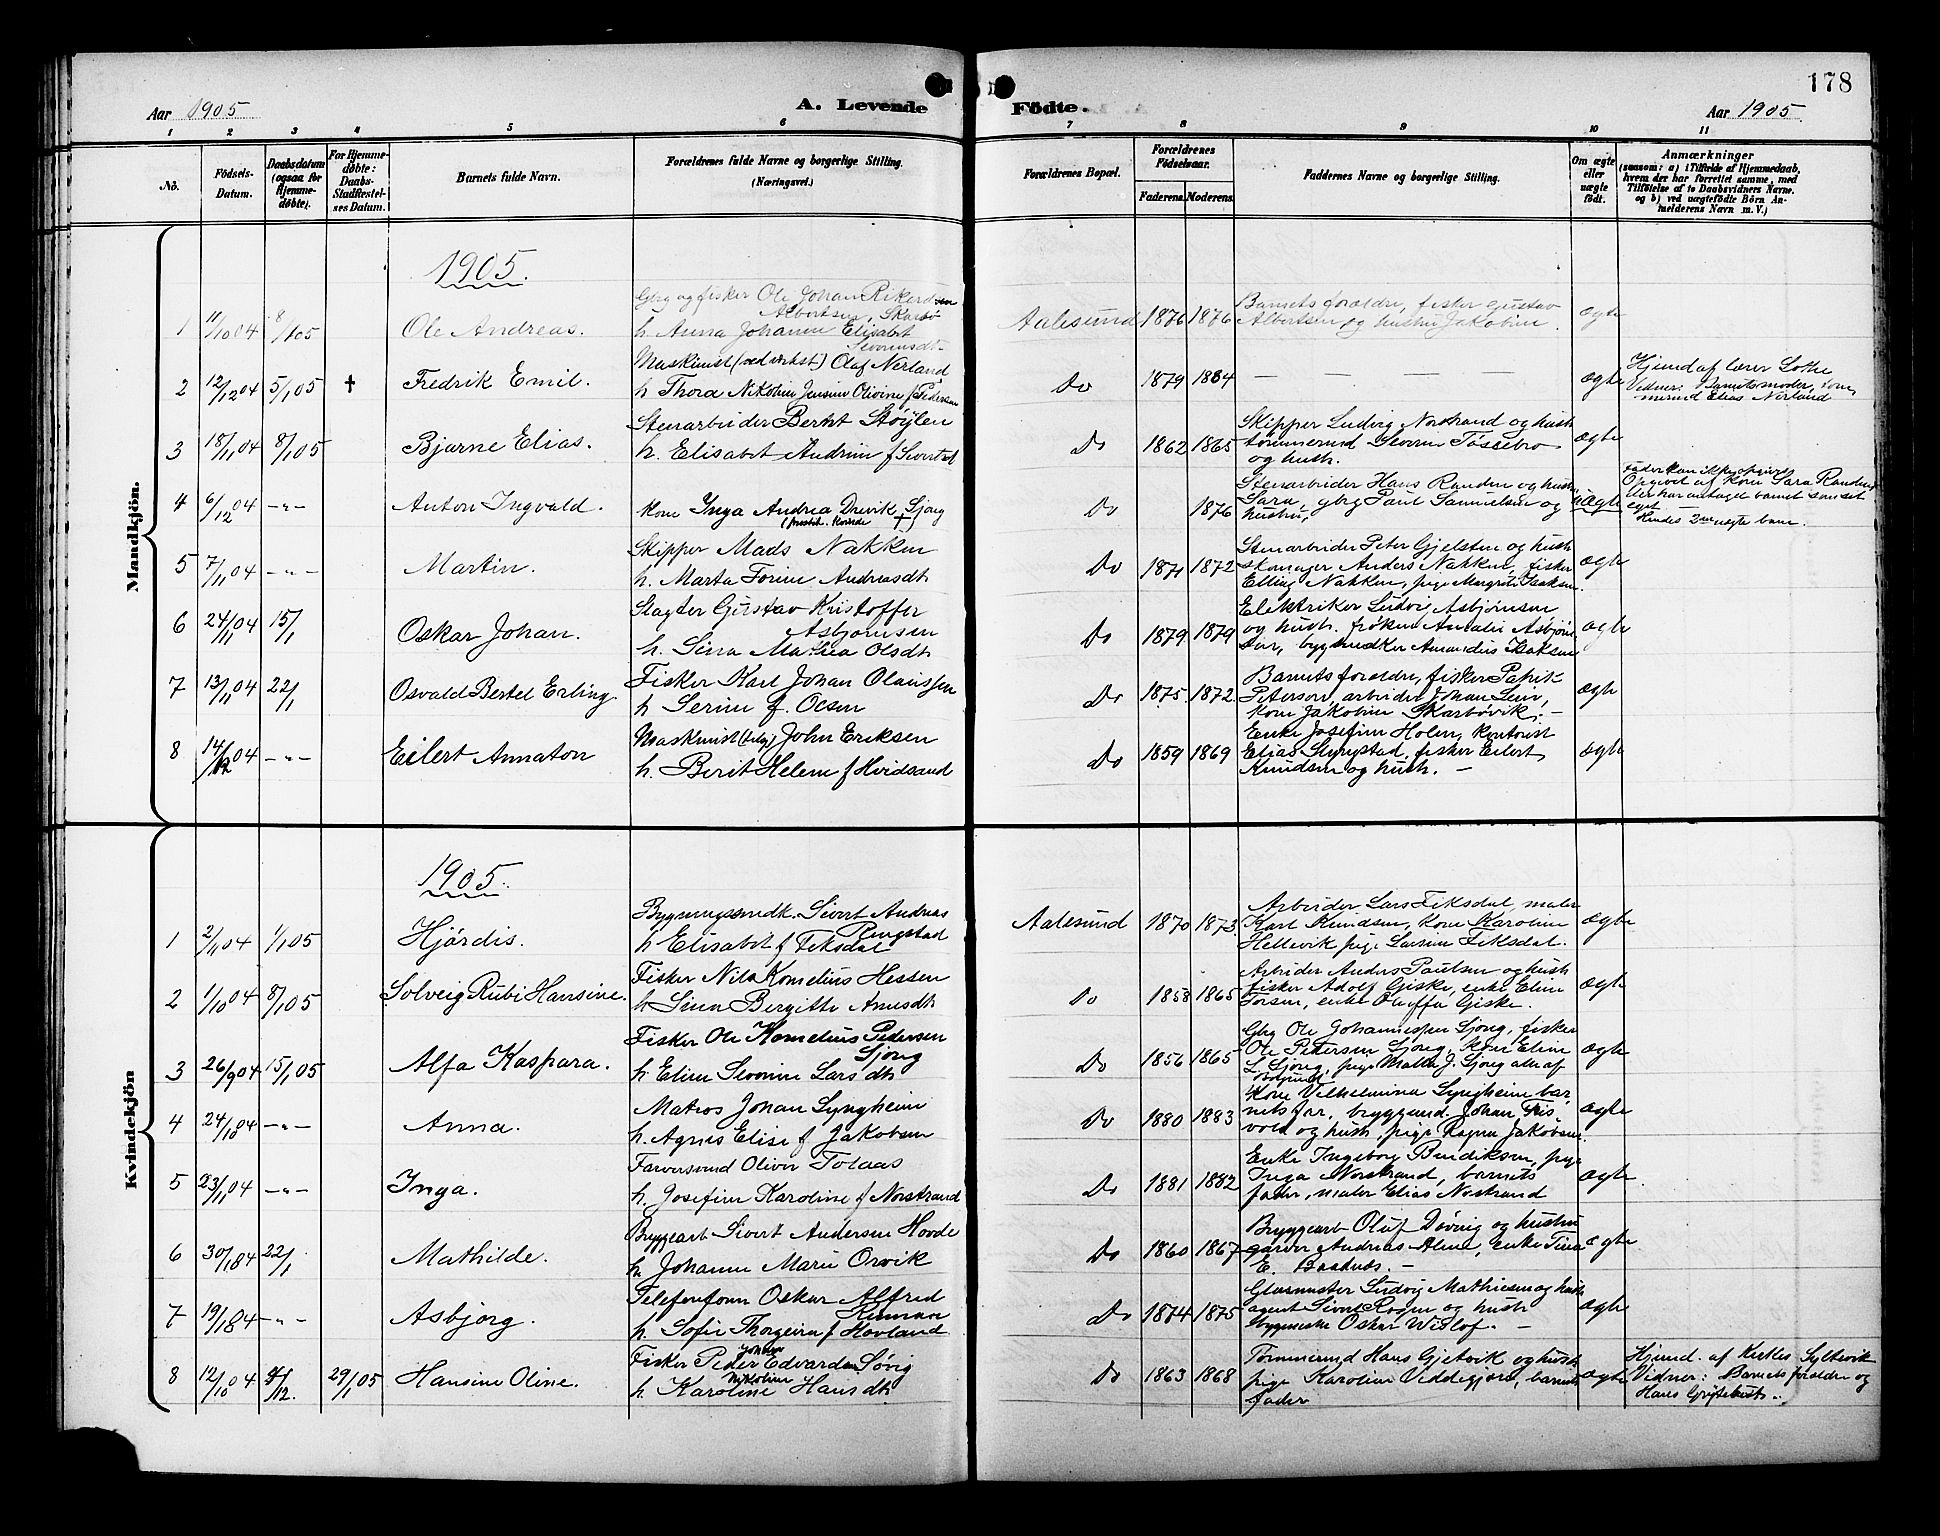 178
Aar 1905
A. Levende
Födte.
Aar 1905
1 2 3 4 5 6 7 8 9 10 11
No.
Födsels-
Datum.
Daabsdatum
(ogsaa for
Hjemme-
døbte).
For Hjemme-
døbte:
Daabs-
Stadfæstel-
ses Datum.
Barnets fulde Navn.
Forældrenes fulde Navne og borgerlige Stilling.
(Næringsvei.)
Forældrenes Bopæl.
Forældrenes
Födselsaar.
Faderens. Moderens.
Faddernes Navne og borgerlige Stilling.
Om ægte
eller
uægte
født.
Anmærkninger
(saasom: a) i Tilfælde af Hjemmedaab,
hvem der har forrettet samme, med
Tilføielse af to Daabsvidners Navne.
og b) ved uægtefødte Börn An-
melderens Navn m. V.)
Mandkjön.
1905.
1 11/10 04 8/1 05 Ole Andreas.
Gbrg og fisker Ole Johan Rikardsen
Albertsen, Skarbø
h. Anna Johanne Elisabet
Sevrinsdt.
Aalesund 1876 1876
Barnets forældre, fisker Gustav
Albertsen og hustru Jakobine.
ægte
2 12/12 04 5/1 05 † Fredrik Emil.
Maskinist (ved verkst.) Olaf Nerland
h Thora Nikoline Jensine Olivine f Pedersen
Do 1879 1884 — — — — ægte
Hjemd af lærer Sothe
Vidner: Barnets moder, tøm
mermd Elias Nerland
3 18/11 04 8/1 05 Bjarne Elias.
Stenarbeider Bernt Støylen
h. Elisabet Andrine f Sivertsd
Do 1862 1865
Skipper Ludvig Norstrand og hustr
tømmermd Severin Tøssebro
og hustr.
ægte
4 6/12 04 —"— Anton Ingvald.
Kone Inga Andrea Drevik, Sjong
Do 1876
Stenarbeider Hans Randen og hustr
Sara, gbrg Paul Samuelsen og
hustru,
uægte
Fader kan ikke opgives
Opgivet af Kone Sara Randen
der har antaget barnet som sit
eget.
Hendes 2det uægte barn.
5 7/11 04 —"— Martin.
Skipper Mads Nakken
h. Marta Torine Andreasdt
Do 1871 1872
Stenarbeider Peter Gjelsten og hustr
skomager Anders Nakken, fisker
Elling Nakken, pige Margrete Isaksen.
ægte
6 24/11 04 15/1 Oskar Johan.
Slagter Gustav Kristoffer
Asbjørnsen
h. Sina Mathea Olsdt
Do 1879 1879
Elektriker Ludvig Asbjørnsen
og hustr. frøken Amalie Asbjørn
sen, bygsnedker Amandus Isaksen
ægte
7 13/11 04 22/1 Osvald Bertel Erling.
Fisker Karl Johan Olaussen
h Serine f. Olsen
Do 1875. 1872.
Barnets forældre, fisker Patrik
Peterson, arbeider Johan Lein,
kone Jakobine Skarbøvik. —
ægte
8 14/12 04 —"— Eilert Annaton
Maskinist (belg) John Eriksen
h. Berit Helene f Hvidsand
Do 1859 1869
Enke Josefine Holen, kontorist
Elias Slyngstad, fisker Eilert
Knudsen og hustr. —
ægte
Kvindekjön
1905.
1 2/11 04 1/1 05 Hjørdis.
Bygningssnedk. Sivert Andreas
Ringstad
h Elisabet f Fiksdal
Aalesund 1870 1873.
Arbeider Lars Fiksdal, maler
Karl Knudsen, kone Karoline
Hellevik pige Larsine Fiksdal.
ægte
2 1/10 04 8/1 05 Solveig Rubi Hansine.
Fisker Nils Kornelius Hessen
h Sina Bergitte Arnesdt
Do 1858 1865
Arbeider Anders Paulsen og hustr
fisker Adolf Giske, enke Eline
Torsen, enke Oluffa Giske.
ægte
3 26/9 04 15/1 05 Alfa Kaspara.
Fisker Ole Kornelius Pedersen
Sjong
h Eline Sevrine Larsdt
Do 1856 1865
Gbrg Ole Johannessen Sjong, fisker
Ole Pedersen Sjong, kone Eline
L Sjong, pige Malla J. Sjong alle af
ægte
4 24/1 84 —"— Anna.
Matros Johan Lyngheim
h. Agnes Elise f Jakobsen
Do 1880 1883
Kone Vilhelmina Lyngheim bar
nets far, bryggemd. Johan Lis
vold og hustr. pige Ragna Jakobsen.
ægte
5 23/11 04 —"— Inga.
Farversvend Oliver Tolaas
h. Josefine Karoline f Norstrand
Do 1881 1882
Enke Ingeborg Bendiksen, pige
Inga Norstrand, barnets
fader, maler Elias Norstrand
ægte.
6 30/1 84 22/1 Mathilde.
Bryggearb Sivert Andersen Hovde
h. Johanne Marie Orvik
Do 1860 1867
Bryggearb Oluf Døving og hustru
garver Andreas Alme, enke Tina
E. Baadnes. —
ægte
7 19/1 84 —"— Asbjørg.
Telefonform Oskar Alfred
Kinman
h. Sofie Thorgeira f Hovland
Do 1874 1875
Glasmester Ludvig Mathiesen og hustr
agent Sivert Rogne og hustr
byggmester Oskar Widlof. —
ægte
8 12/10 04 4/12. 29/1 05 Hansine Oline.
Fisker Peder Johan Edvardsen Søvig
h. Karoline Nikoline Hansdt
Do 1863 1868
Tømmermd Hans Gjetvik og hustr
pige Karoline Viddegjerd, barnets
fader
ægte
Hjemd. af Kirkes Syltevik
Vidner: Barnets forældre og